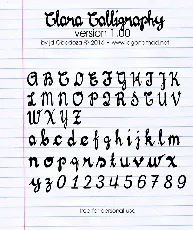 Clara Calligraphy
version 1.00
A B C D E F G H I J K
L M N O P Q R S T U V
W X Y Z
a b c d e f g h i j k l m
n o p q r s t u v w x
y z 0 1 2 3 4 5 6 7 8 9
free for personal use